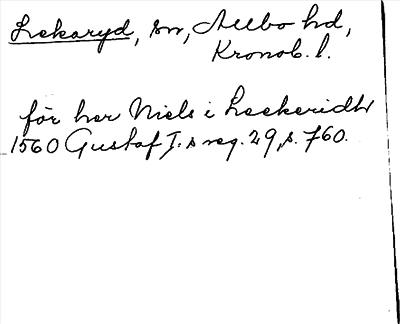 Lekaryd, sn, Allbo hd,
Kronob. l.
för her Niels i Leckeridh
1560 Gustaf I.s reg. 29, s. 760.